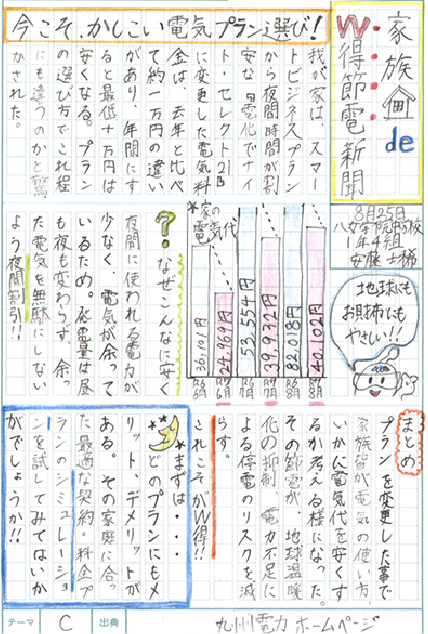 家族 de
W得節電新聞
8月25日
1年4組
今こそ、かしこい電気プラン選び!
我が家は、スマー
トビジネスプラン
から夜間時間が割
安な電化でナイ
ト・セレクト21
に変更した電気料
金は、去年と比べ
て約一万円の違い
があり、年間にす
ると最低十万円は
安くなる。プラン
の選び方でこれ程
にも違うのかと驚
かされた。
地球にも
お財布にも
やさしい!!
*家の
電気代
36,101円
24,969円
53,554円
39,932円
82,018円
40,102円
R6
6月
R7
6月
R6
7月
R7
7月
R6
8月
R7
8月
?なぜこんなに安く
夜間に使われる電力が
少なく、電気が余って
いるため。発電量は昼
も夜も変わらず、余っ
た電気を無駄にしない
よう夜間割引!!
まとめ
プランを変更した事で
家族皆が電気の使い方、
いかに電気代を安くす
るか考える様になった。
その節電が、地球温暖
化の抑制、電力不足に
よる停電のリスクを減
らす。
これこそがW得!!
*まずは・・・
どのプランにもメ
リット、デメリットが
ある。その家庭に合っ
た最適な契約・料金プ
ランのシミュレーショ
ンを試してみてはいか
がでしょうか!!
テーマ
C
出典
九州電力ホームページ